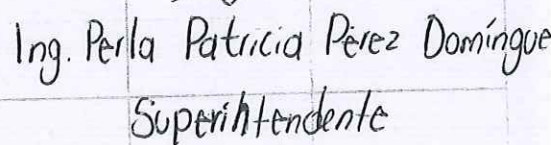 Ing. Perla Patricia Pérez Domíngue
Superintendente